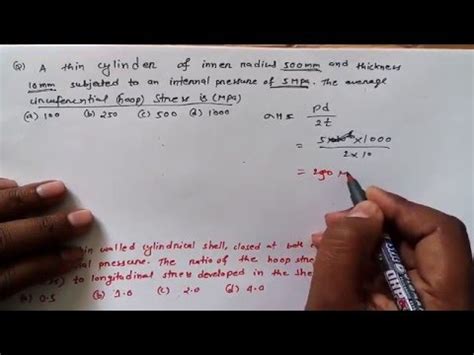 Q) A thin cylinder of inner radius 500mm and thickness
10mm subjected to an internal pressure of 5 MPa. The average
circumferential (hoop) stress is (MPa)
(a) 100 (b) 250 (c) 500 (d) 1000
= Pd / 2t
= 5 × 1000 / 2 × 10
= 250 M
walled cylindrical shell, closed at both
pressure. The ratio of the hoop stre
to longitudinal stress developed in the she
(a) 0.5 (b) 1.0 (c) 2.0 (d) 4.0